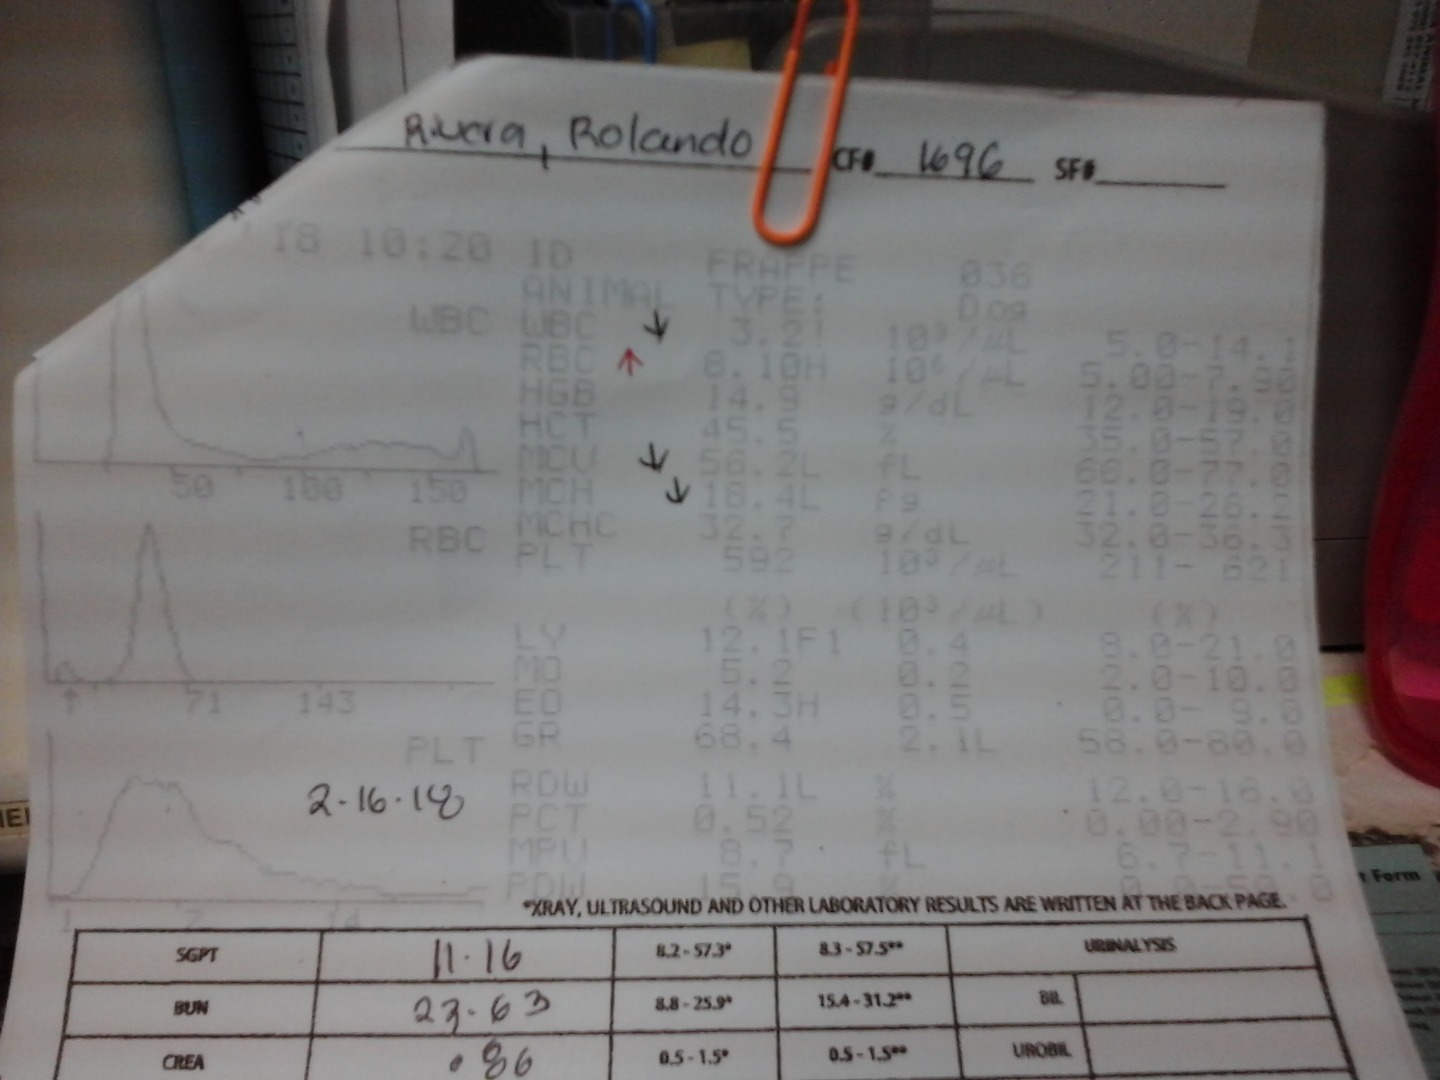 Rivera, Rolando CF# 1696 SF#
18 10:20 ID FRAPPE 036
ANIMAL TYPE: Dog
WBC WBC ↓ 3.2! 10³/µL 5.0-14.
RBC ↑ 8.10H 10⁶/µL 5.00-7.90
HGB 14.9 g/dL 12.0-19.0
HCT 45.5 % 35.0-57.0
MCV ↓ 56.2L fL 66.0-77.0
50 100 150 MCH ↓ 18.4L Pg 21.0-26.2
RBC MCHC 32.7 g/dL 32.0-36.3
PLT 592 10³/µL 211- 621
(%) (10³/µL) (%)
LY 12.1F1 0.4 8.0-21.0
MO 5.2 0.2 2.0-10.0
71 143 EO 14.3H 0.5 0.0- 9.0
PLT GR 68.4 2.1L 58.0-80.0
2.16.18 RDW 11.1L % 12.0-16.0
PCT 0.52 % 0.00-2.90
MPV 8.7 fL 6.7-11.1
PDW 15.9 %
*XRAY, ULTRASOUND AND OTHER LABORATORY RESULTS ARE WRITTEN AT THE BACK PAGE.
SGPT 11.16 8.2 - 57.3* 8.3 - 57.5** URINALYSIS
BUN 23.63 8.8 - 25.9* 15.4 - 31.2** BIL
CREA .86 0.5 - 1.5* 0.5 - 1.5** UROBIL
Form